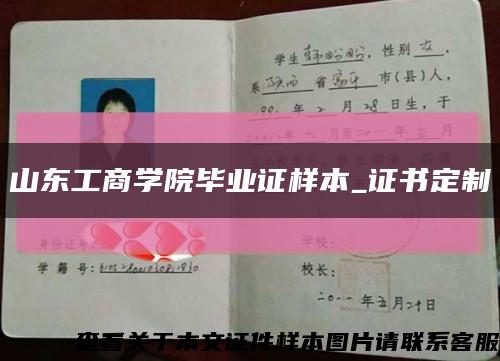 学生韩盼盼，性别女，
系陕西省富平市(县)人，
年2月28日生，于
年九月至二〇一一年五月
山东工商学院毕业证样本_证书定制
身份证号：
学籍号：
学校：
校长：
二〇一一年五月24日
查看关于本文证件样本图片请联系客服